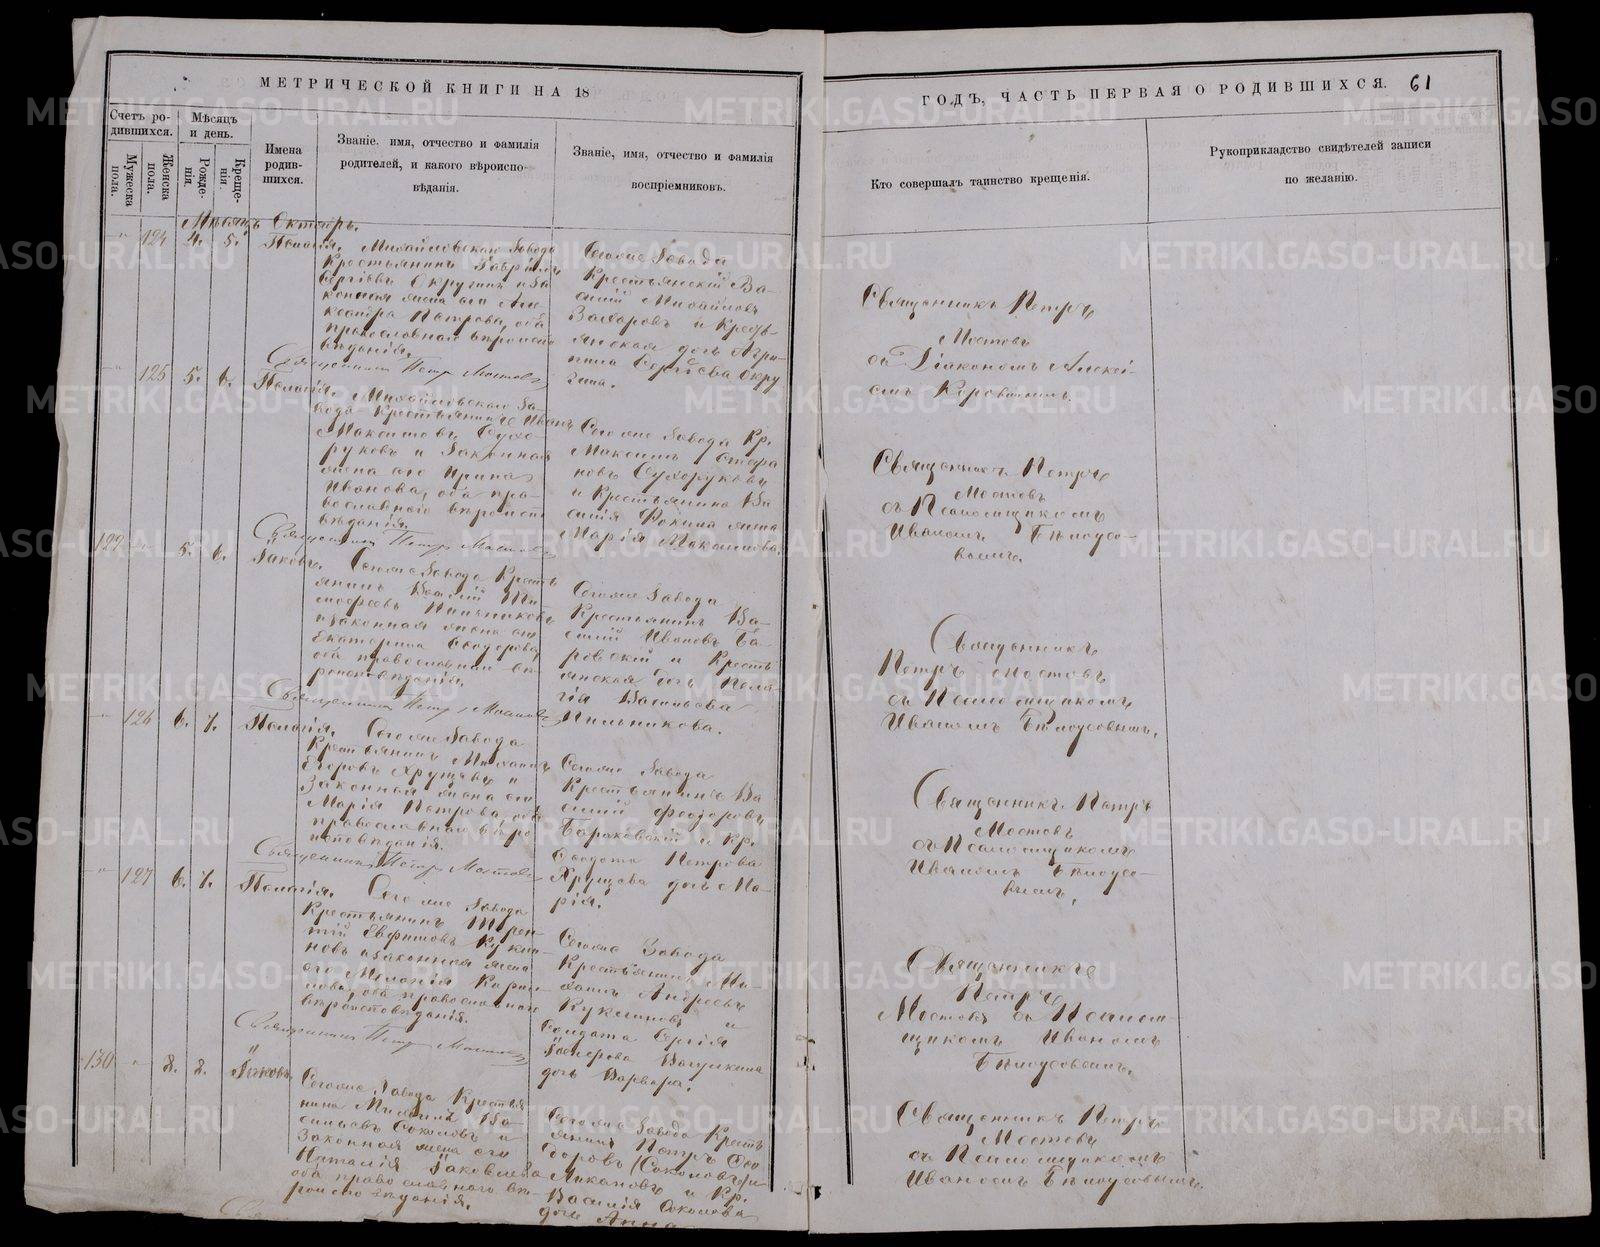 МЕТРИЧЕСКОЙ КНИГИ НА 18
ГОДЪ, ЧАСТЬ ПЕРВАЯ О РОДИВШИХСЯ. 61
Счетъ ро-
дившихся.
Мужеска
пола.
Женска
пола.
Мѣсяцъ
и день.
Рожде-
нія.
Креще-
нія.
Имена
родив-
шихся.
Званіе. имя, отчество и фамилія
родителей, и какого вѣроиспо-
вѣданія.
Званіе, имя, отчество и фамилія
воспріемниковъ.
Кто совершалъ таинство крещенія.
Рукоприкладство свидѣтелей записи
по желанію.
Мѣсяцъ Октябрь.
124 4. 5. Пелагія.
Михайловскаго Завода
Крестьянинъ Гавріилъ
Сергѣевъ Окружин и За
конная жена его Але
ксандра Петрова, оба
православнаго вѣроиспо
вѣданія.
Священникъ Петръ Мостовъ
Того же Завода
Крестьянскій Ва-
силій Михайловъ
Захаровъ и Кресть-
янская дочь Агри-
пина Сергѣева Окру
жина.
Священникъ Петръ
Мостовъ
съ Діакономъ Алексѣ-
емъ Коровинымъ.
125 5. 6. Пелагія.
Михайловскаго За-
вода Крестьянинъ Иванъ
Максимовъ Сухо-
руковъ и Законная
жена его Ирина
Иванова, оба пра-
вославнаго вѣроиспо
вѣданія.
Священникъ Петръ Мостовъ
Того же Завода Кр.
Максимъ Стефа
новъ Сухоруковъ
и Крестьянина Ва
силія Фокина жена
Марія Максимова.
Священникъ Петръ
Мостовъ
съ Псаломщикомъ
Иваномъ Бѣлоусо-
вымъ.
5. 6. Іаковъ.
Того же Завода Кресть
янинъ Василій Ти
мофеевъ Пильниковъ
и Законная жена его
Екатерина Ѳеодорова,
оба православнаго вѣ-
роисповѣданія.
Священникъ Петръ Мостовъ
Того же Завода
Крестьянинъ Ва-
силій Ивановъ Ба-
ровскій и Кресть
янская дочь Пела-
гія Васильева
Пильникова.
Священникъ
Петръ Мостовъ
съ Псаломщикомъ
Иваномъ Бѣлоусовымъ.
126 6. 7. Пелагія.
Того же Завода
Крестьянинъ Михаилъ
Егоровъ Хрущевъ и
Законная жена его
Марія Петрова, оба
православнаго вѣро
исповѣданія.
Священникъ Петръ Мостовъ
Того же Завода
Крестьянинъ Ва
силій Феодоровъ
Барановскій и Кр.
Ѳеодота Петрова
Хрущова дочь Ма-
рія.
Священникъ Петръ
Мостовъ
съ Псаломщикомъ
Иваномъ Бѣлоусо-
вымъ.
127 6. 7. Пелагія.
Того же Завода
Крестьянинъ Терен-
тій Евфимовъ
и законная жена
его Меланія
оба православнаго
вѣроисповѣданія.
Священникъ Петръ Мостовъ
Того же Завода
Крестьянинъ Ми-
хаилъ Андреевъ
и
Солдата Сергія
дочь Варвара.
Священникъ
Петръ
Мостовъ съ Псалом-
щикомъ Иваномъ
Бѣлоусовымъ.
130 8. 8. Іаковъ.
Того же Завода Крестья
нинъ Михаилъ Ва-
сильевъ Соколовъ и
Законная жена его
Наталія Іаковлева
оба православнаго вѣ-
роисповѣданія.
Того же Завода Кресть
янинъ Петръ Ѳео
доровъ (Соколовъ)
и Кр.
Василія Соколова
дочь Анна
Священникъ Петръ
Мостовъ
съ Псаломщикомъ
Иваномъ Бѣлоусовымъ.
METRIKI.GASO-URAL.RU